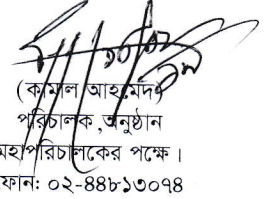 (কামাল আহমেদ)
পরিচালক,অনুষ্ঠান
মহাপরিচালকের পক্ষে।
ফোন: ০২-৪৪৮১৩০৭৪